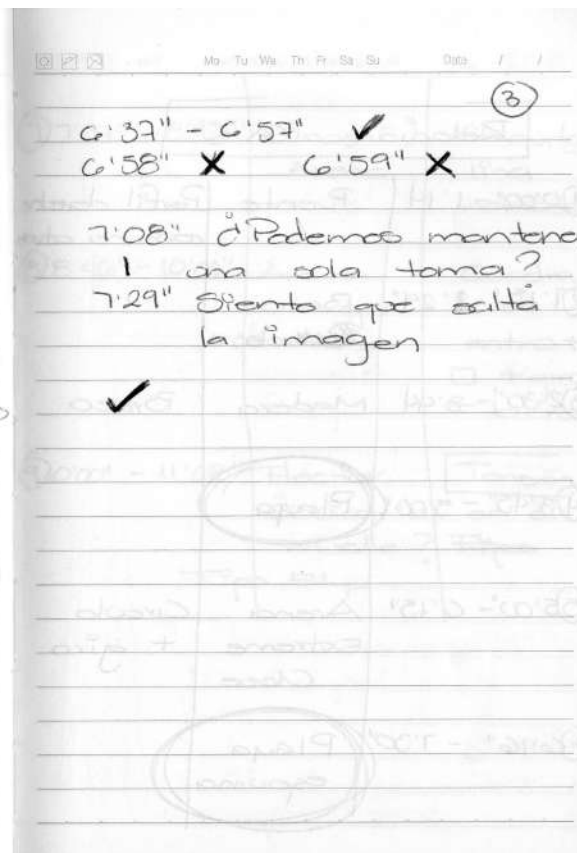 Mo Tu We Th Fr Sa Su Date / /
3
6'37" - 6'57" ✓
6'58" X 6'59" X
7'08" ¿Podemos mantene
1 una sola toma?
7'29" Siento que salta
la imagen
✓